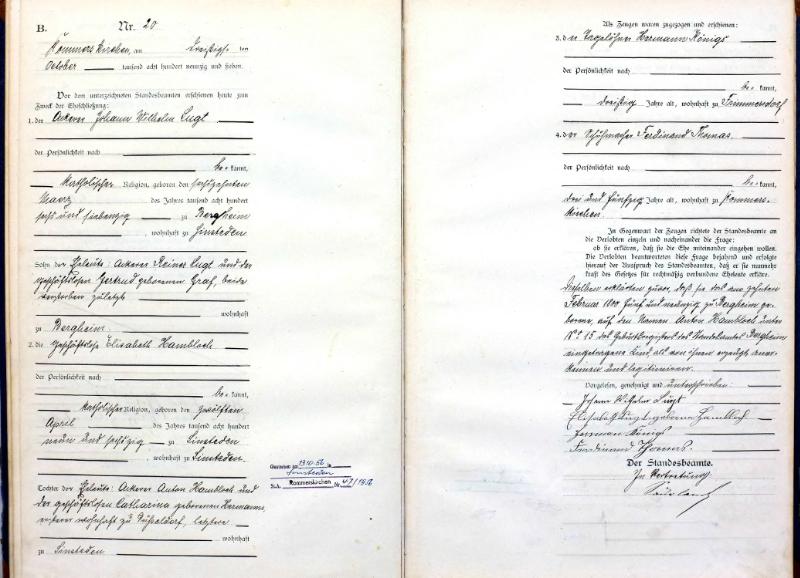 B.
Nr. 20
Rommerskirchen, am dreißigsten
October tausend acht hundert neunzig und sieben.
Vor dem unterzeichneten Standesbeamten erschienen heute zum
Zweck der Eheschließung:
1. der Ackerer Johann Wilhelm Lugt
der Persönlichkeit nach
be-kannt,
katholischer Religion, geboren den sechszehnten
Maerz des Jahres tausend acht hundert
sechs und siebenzig zu Bergheim
, wohnhaft zu Sinsteden
Sohn der Eheleute: Ackerer Reiner Lugt und der
geschäftslosen Gertrud geborenen Graf, beide
verstorben zuletzt
wohnhaft
zu Bergheim
2. die geschäftslose Elisabeth Hambloch
der Persönlichkeit nach
be-kannt,
katholischer Religion, geboren den zwölften
April des Jahres tausend acht hundert
neun und sechszig zu Sinsteden
, wohnhaft zu Sinsteden.
Tochter der Eheleute: Ackerer Anton Hambloch und
der geschäftslosen Catharina geborenen Hermanns,
ersterer wohnhaft zu Düsseldorf, letztere
wohnhaft
zu Sinsteden
13.10.56
Sinsteden
St.A. Rommerskirchen Nr. 47/1956
Als Zeugen waren zugezogen und erschienen:
3. der Tagelöhner Hermann Königs
der Persönlichkeit nach
be-kannt,
dreißig Jahre alt, wohnhaft zu Frimmersdorf
4. der Schuhmacher Ferdinand Thomas
der Persönlichkeit nach
be-kannt,
drei und fünfzig Jahre alt, wohnhaft zu Rommers-
kirchen.
In Gegenwart der Zeugen richtete der Standesbeamte an
die Verlobten einzeln und nacheinander die Frage:
ob sie erklären, daß sie die Ehe miteinander eingehen wollen.
Die Verlobten beantworteten diese Frage bejahend und erfolgte
hierauf der Ausspruch des Standesbeamten, daß er sie nunmehr
kraft des Gesetzes für rechtmäßig verbundene Eheleute erkläre.
Dieselben erklärten zuvor, daß sie das am zehnten
Februar 1800 fünf und neunzig zu Bergheim ge-
borene, auf den Namen Anton Hambloch unter
No. 15 des Geburtsregisters des Standesamtes Bergheim
eingetragene Kind als von ihnen erzeugt aner-
kennen und legitimieren.
Vorgelesen, genehmigt und unterschrieben:
Johann Wilhelm Lugt
Elisabeth Lugt geborene Hambloch
Herman Königs
Ferdinand Thomas.
Der Standesbeamte.
In Vertretung